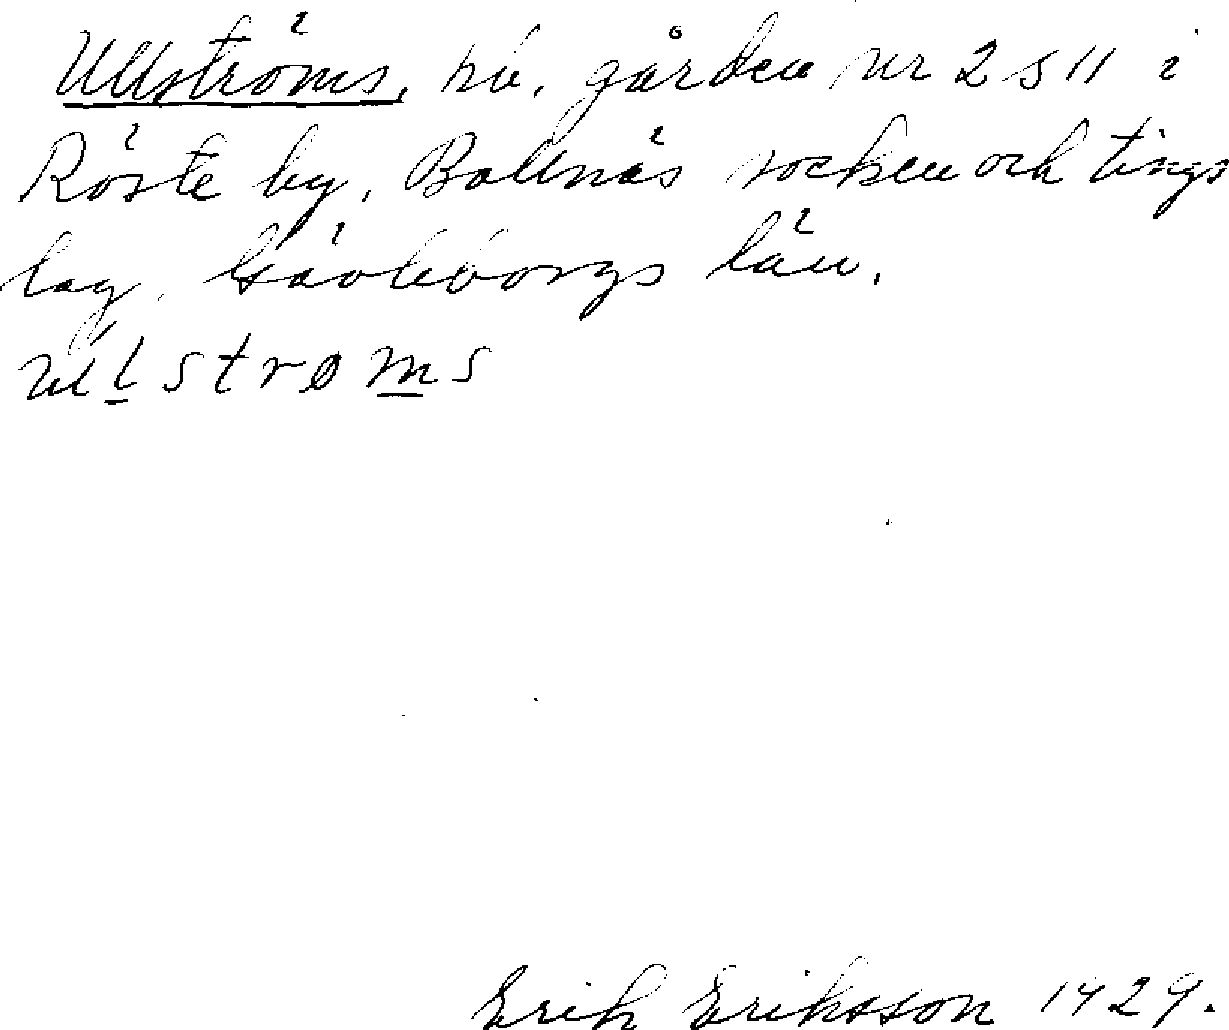 Ullströms, på. gården nr 2 s 11 i
Röste by, Bollnäs socken och tings
lag, Gävleborgs län.
ullstrøms
Erik Eriksson 1929.